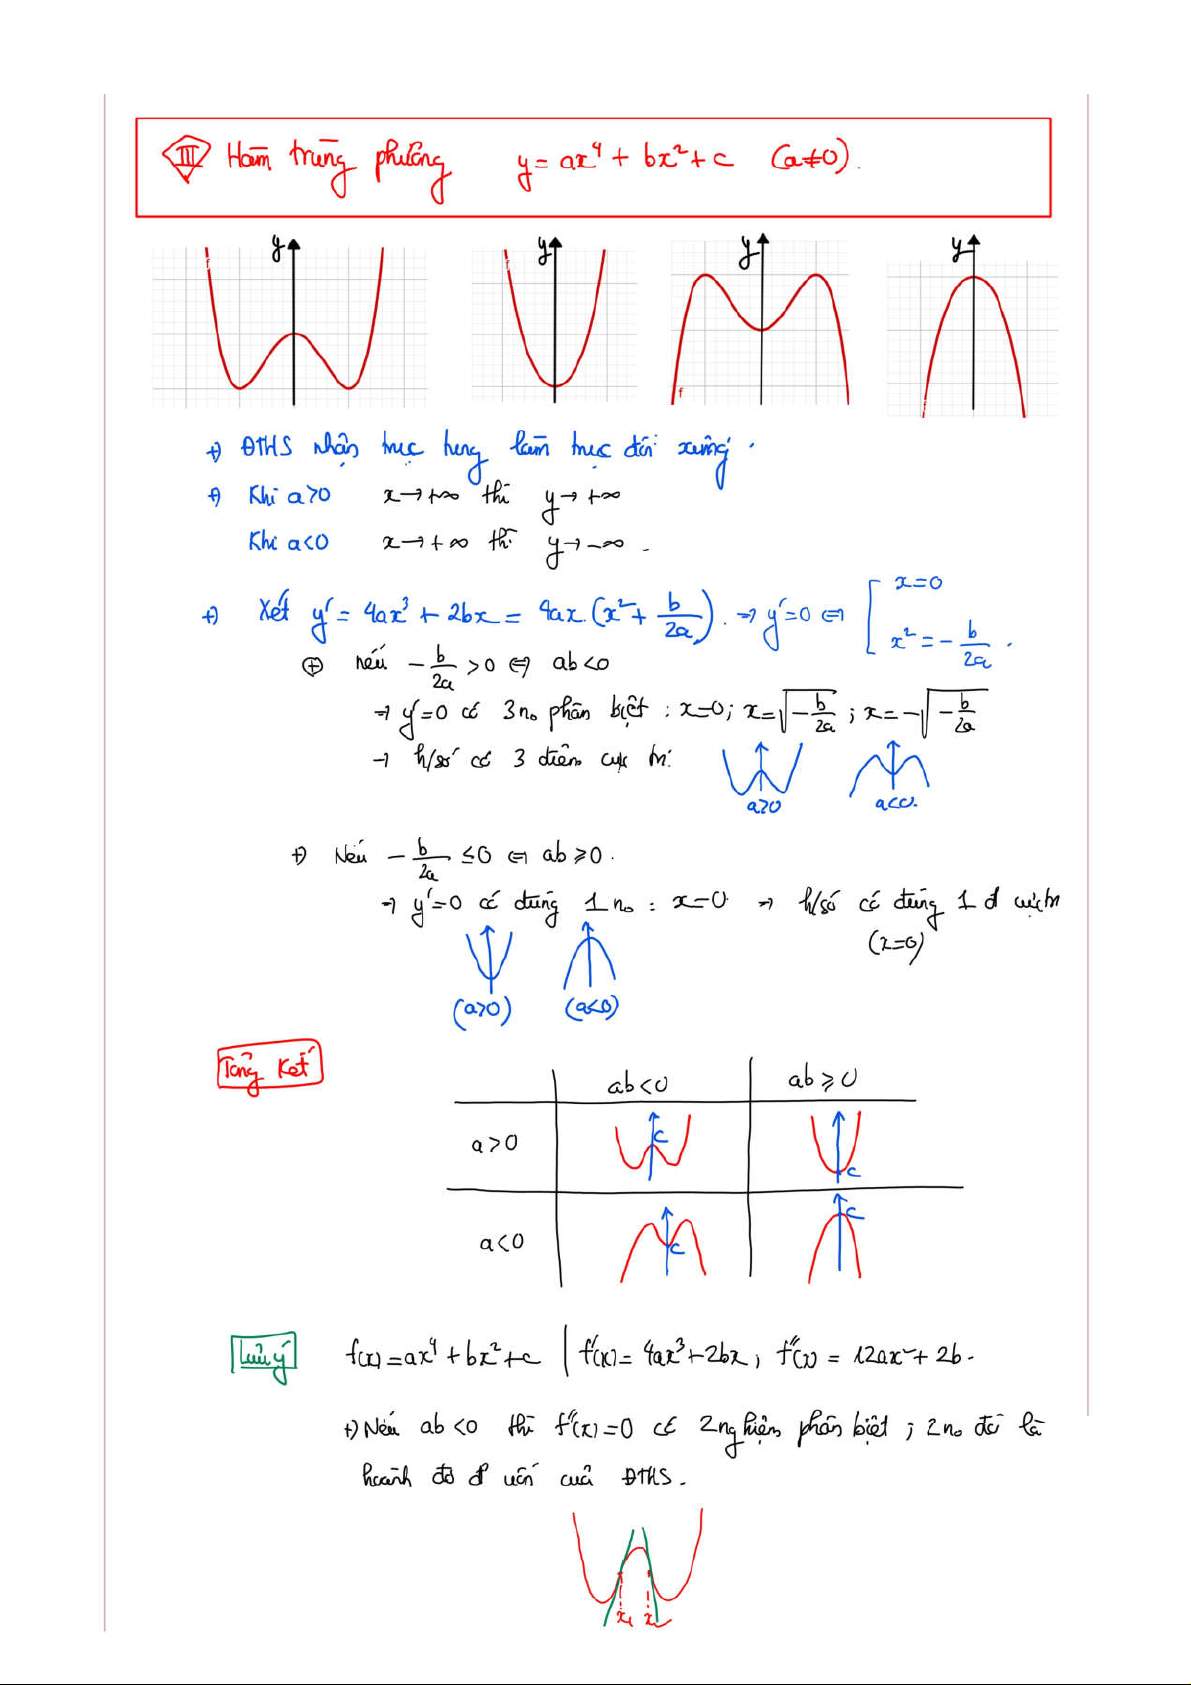 III Hàm trùng phương y = ax⁴ + bx² + c (a≠0).
y y y y
f f f f
+) ĐTHS nhận trục tung làm trục đối xứng.
+) Khi a>0 x→+∞ thì y→+∞
Khi a<0 x→+∞ thì y→−∞.
+) Xét y' = 4ax³ + 2bx = 4ax.(x² + b/2a). → y'=0 ⇔ [ x=0
x² = −b/2a.
⊕ nếu −b/2a > 0 ⇔ ab<0
→ y'=0 có 3 no phân biệt : x=0; x=√(−b/2a) ; x=−√(−b/2a)
→ h/số có 3 điểm cực trị:
a>0 a<0.
+) Nếu −b/2a ≤0 ⇔ ab≥0.
→ y'=0 có đúng 1 no : x=0 → h/số có đúng 1 đ cực trị
(x=0)
(a>0) (a<0)
Tổng kết
ab<0 ab≥0
a>0 c c
a<0 c c
Lưu ý f(x)=ax⁴+bx²+c | f'(x)= 4ax³+2bx; f''(x) = 12ax²+2b.
+) Nếu ab<0 thì f''(x)=0 có 2 nghiệm phân biệt ; 2 no đó là
hoành độ đ uốn của ĐTHS.
x₁ x₂